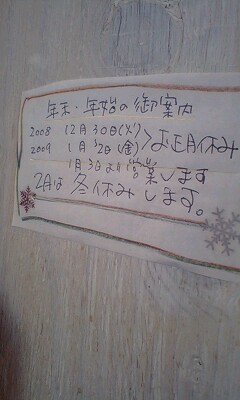 年末・年始の御案内
2008 12月30日(火)
2009 1月2日(金)>お正月休み
1月3日より営業します
2月は冬休みします。